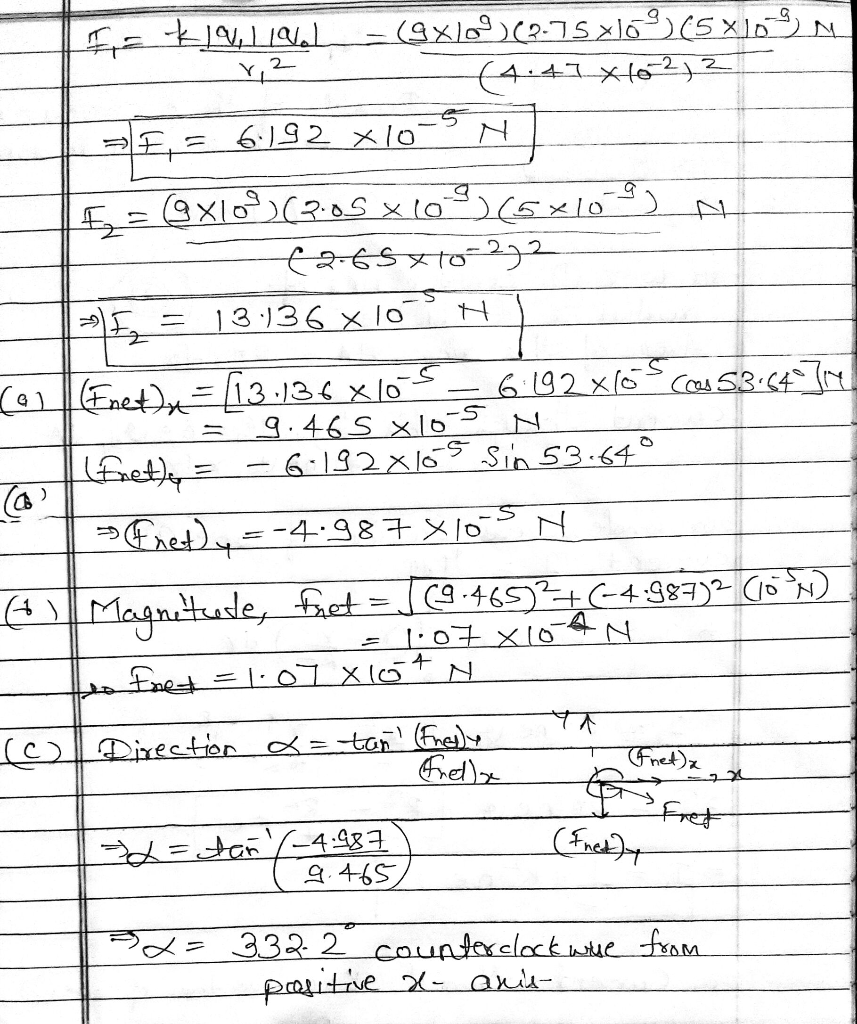 F₁ = k|q₁||q₀| / r₁² = (9×10⁹)(2.75×10⁻⁹)(5×10⁻⁹) N / (4.47×10⁻²)²
⇒ F₁ = 6.192 ×10⁻⁵ N
F₂ = (9×10⁹)(2.05×10⁻⁹)(5×10⁻⁹) N / (2.65×10⁻²)²
⇒ F₂ = 13.136 ×10⁻⁵ N
(a) (Fnet)x = [13.136×10⁻⁵ − 6.192×10⁻⁵ cos53.64°]N
= 9.465 ×10⁻⁵ N
(Fnet)y = − 6.192×10⁻⁵ Sin 53.64°
(a)
⇒ (Fnet)y = -4.987 ×10⁻⁵ N
(b) Magnitude, Fnet = √(9.465)²+(-4.987)² (10⁻⁵N)
= 1.07 ×10⁻⁴ N
so Fnet = 1.07 ×10⁻⁴ N
(c) Direction α = tan⁻¹ (Fnet)y / (Fnet)x
y
(Fnet)x
x
Fnet
(Fnet)y
⇒ α = tan⁻¹ (-4.987 / 9.465)
⇒ α = 332.2° counterclockwise from
positive x- axis-